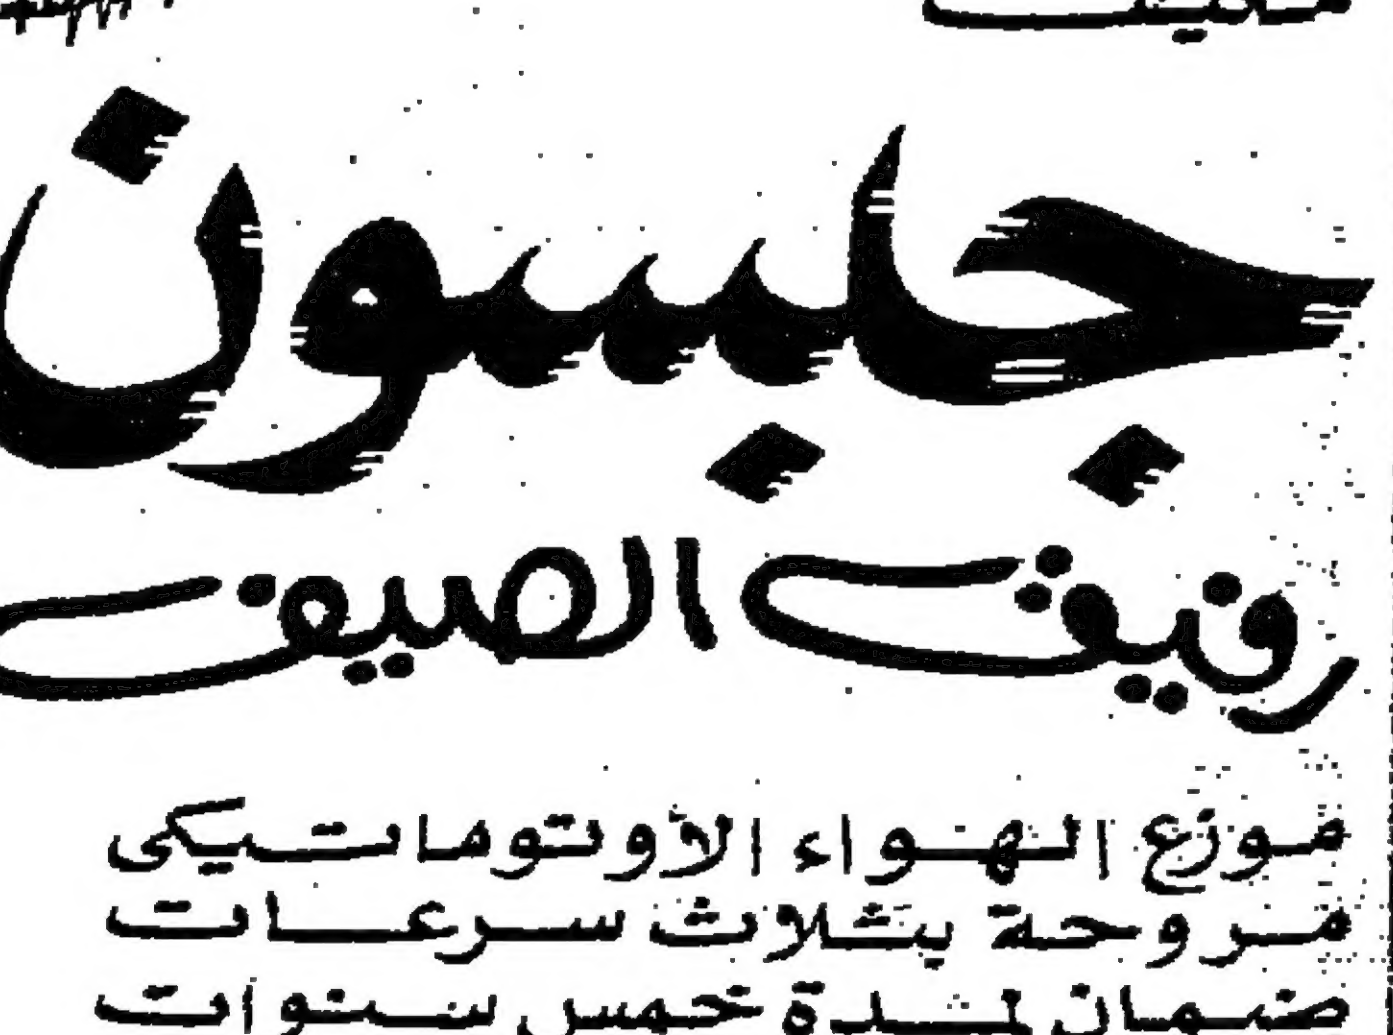 جبسون
رفيق الصيف
موزع الهواء الأوتوماتيكى
مروحة بثلاث سرعات
ضمان لمدة خمس سنوات